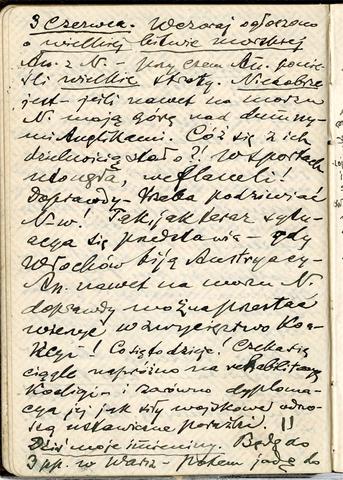 3 Czerwca. Wczoraj ogłoszono
o wielkiej bitwie morskiej
An. z N. – przyczem An. ponie-
śli wielkie straty. Niedobrze
jest – jeśli nawet na morzu
N. mają górę nad dumny-
mi Anglikami. Cóż się z ich
dzielnością stało?! W sportach
utonęła, w flaneli!
Doprawdy – trzeba podziwiać
N-w! Tak, jak teraz sytu-
acya się przedstawia – gdy
Włochów biją Austryacy –
An. nawet na morzu N.
doprawdy można przestać
wierzyć w zwycięstwo Koa-
licyi! Co się to dzieje! Czeka się
ciągle napróżno na
Koalicyi – i zarówno dyploma-
cya jej jak siły wojskowe odno-
szą ustawicznie porażki. !!
Dziś moje imieniny. Będę do
3 pp. w Warsz – potem jadę do